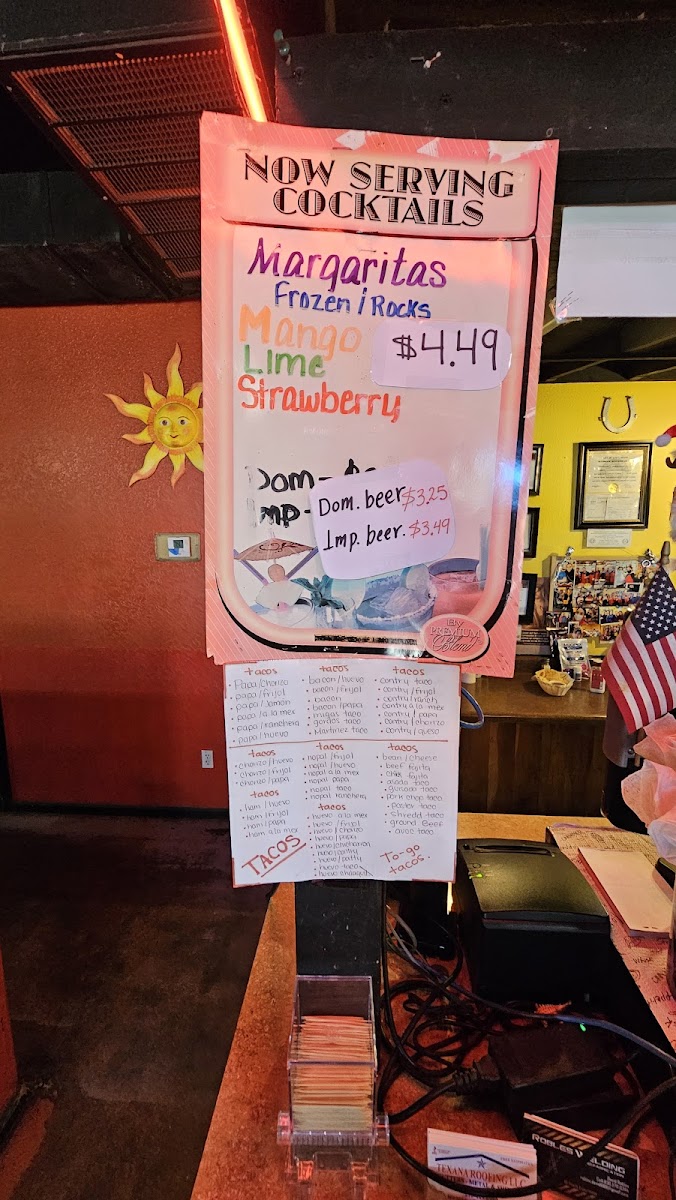 NOW SERVING
COCKTAILS
Margaritas
Frozen / Rocks
Mango
$4.49
Lime
Strawberry
Dom. beer $3.25
Imp. beer. $3.49
PREMIUM
Blend
tacos
• papa/chorizo
• papa/frijol
• papa/jamon
• papa/a la mex
• papa/ranchera
• papa/huevo
tacos
• bacon/huevo
• bacon/frijol
• bacon
• bacon/papa
• migas taco
• gordos taco
• Martinez taco
tacos
• contry taco
• contry/frijol
• contry/ranch
• contry a la mex
• contry/papa
• contry/chorizo
• contry/queso
tacos
• chorizo/huevo
• chorizo/frijol
• chorizo/papa
tacos
• ham/huevo
• ham/frijol
• ham/papa
• ham a la mex
TACOS
tacos
• nopal/frijol
• nopal/huevo
• nopal a la mex
• nopal papa
• nopal taco
• nopal ranchera
tacos
• huevo a la mex
• huevo/frijol
• huevo/chorizo
• huevo/papa
• huevo/contry
• huevo/patty
• huevo taco
tacos
• bean/cheese
• beef fajita
• fajita
• asada taco
• guisada taco
• pork chop taco
• pastor taco
• shredd taco
• ground beef
• avoc taco
To-go
tacos.
TEXANA ROOFING LLC
ROBLES WELDING